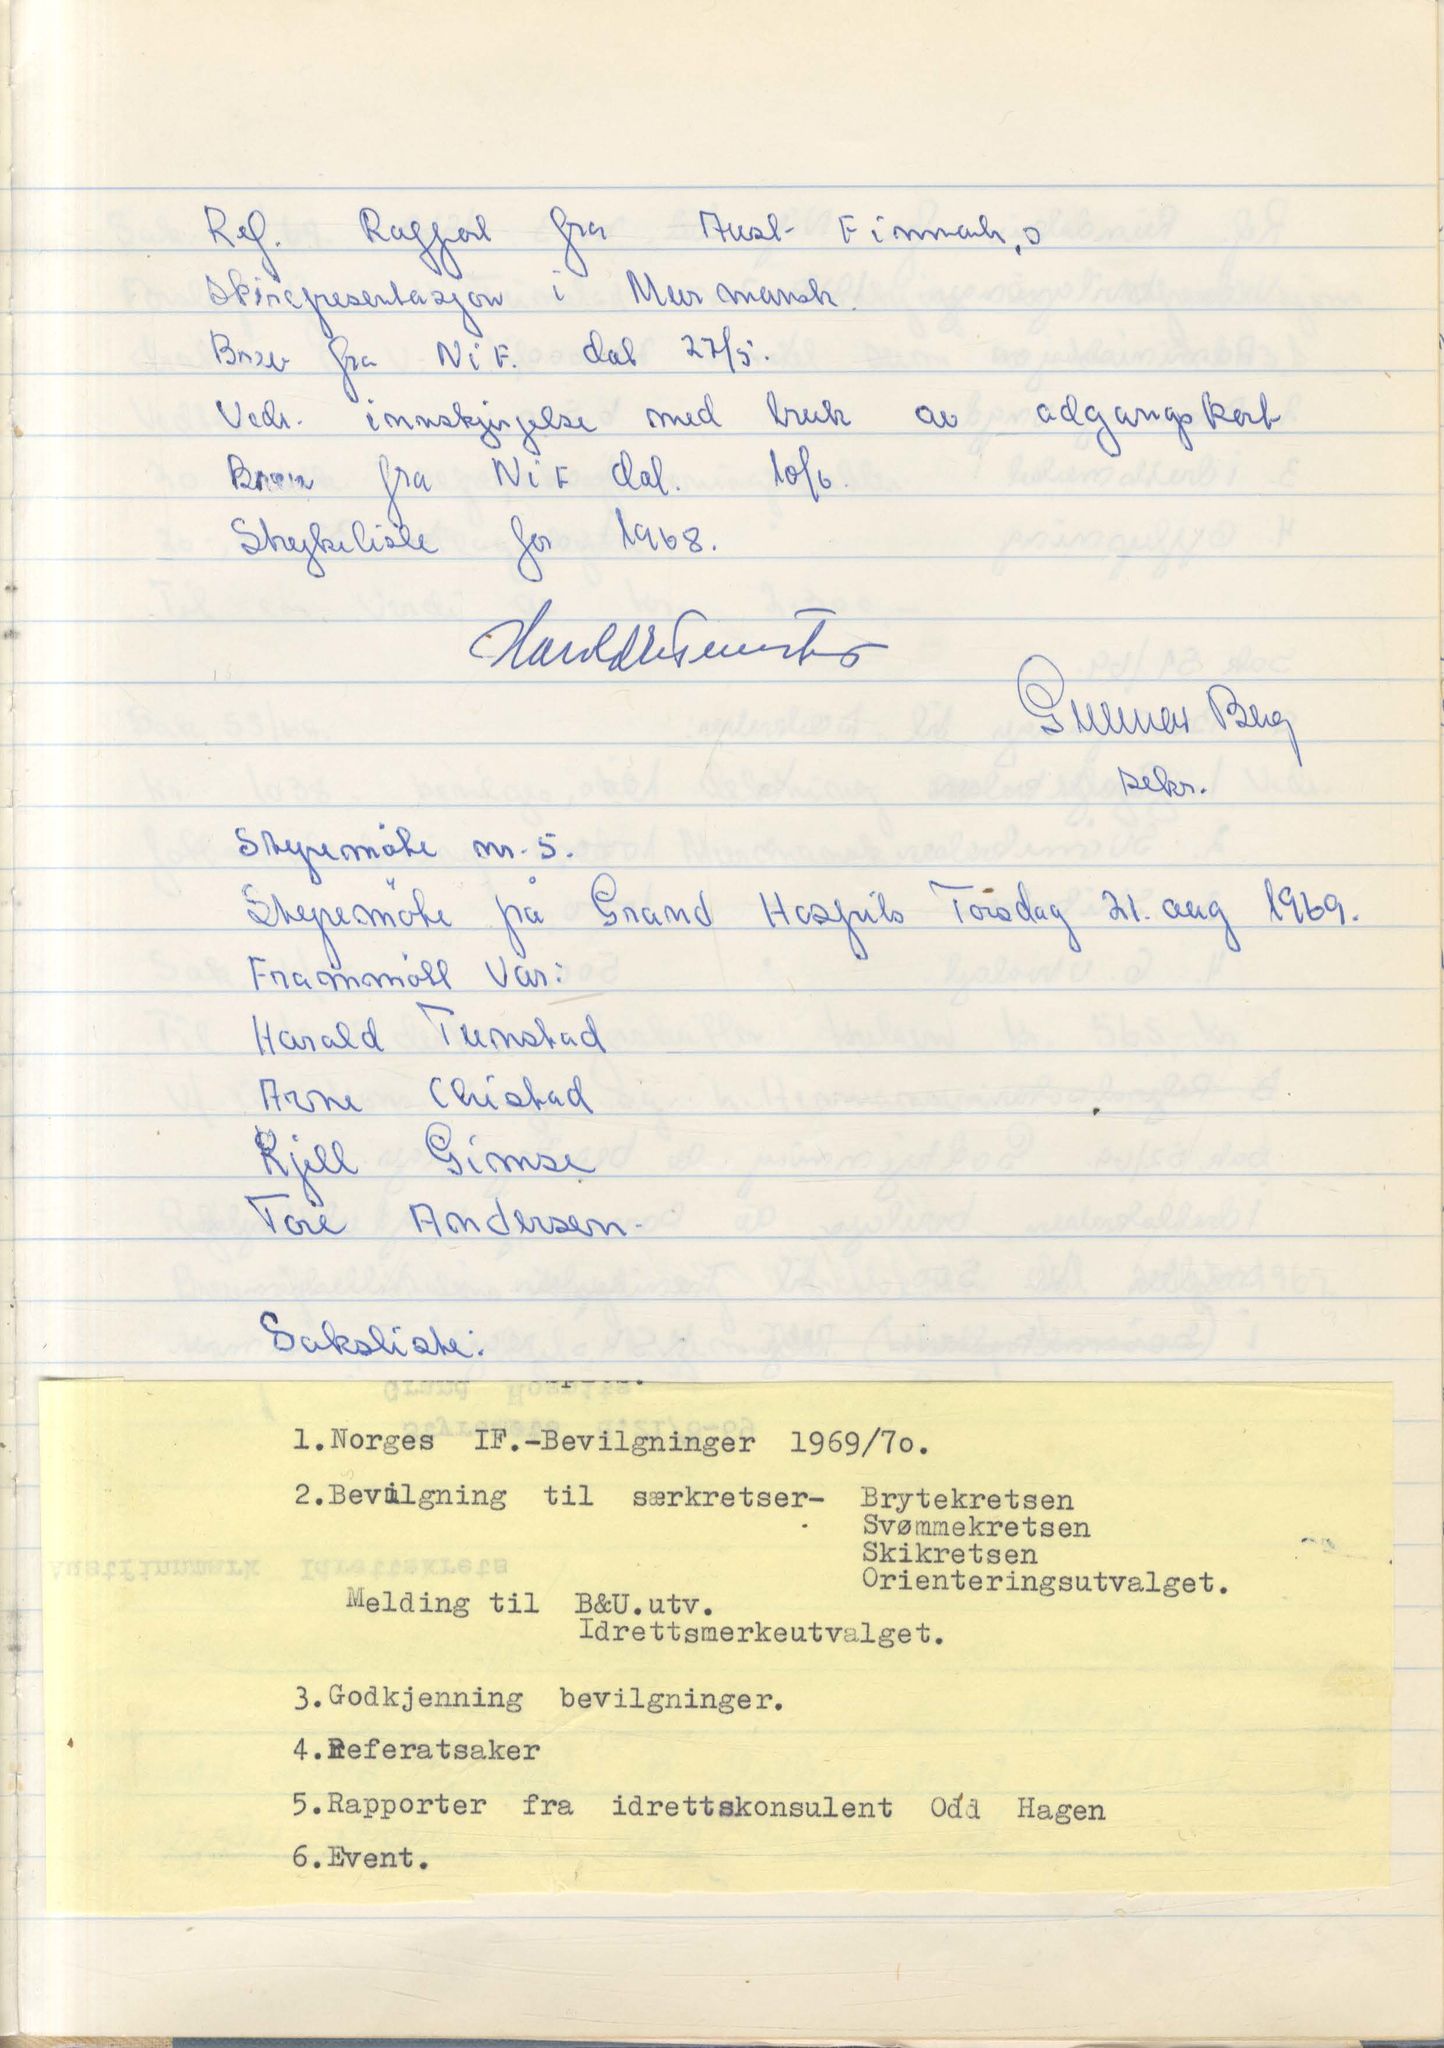 Ref. Rapport fra Aust- Finmark,s
Skirepresentasjon i Murmansk.
Brev fra NiF. dat 27/5.
Vedr. innskjerpelse med bruk av adgangskort
Brev fra NiF dat. 10/6.
Strykeliste for 1968.
Harald Tunstad
Gunnar Berg
sekr.
Styremöte nr. 5.
Styremöte på Grand Hospits Torsdag 21. aug 1969.
Frammött var:
Harald Tunstad
Arne Christad
Kjell Gimse
Tore Andersen.
Saksliste:
1. Norges IF.-Bevilgninger 1969/7o.
2. Bevilgning til særkretser- Brytekretsen
Svømmekretsen
Skikretsen
Orienteringsutvalget.
Melding til B&U.utv.
Idrettsmerkeutvalget.
3. Godkjenning bevilgninger.
4. Referatsaker
5. Rapporter fra idrettskonsulent Odd Hagen
6. Event.